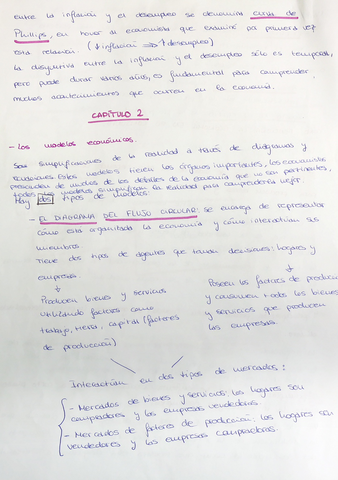 entre la inflación y el desempleo se denomina curva de
Phillips, en honor al economista que examinó por primera vez
esta relación. (↓inflación ⇒ ↑desempleo)
la disyuntiva entre la inflación y el desempleo sólo es temporal,
pero puede durar varios años, es fundamental para comprender
muchos acontecimientos que ocurren en la economía.
CAPÍTULO 2
- Los modelos económicos.
Son simplificaciones de la realidad a través de diagramas y
ecuaciones. Estos modelos tienen los órganos importantes, los economistas
prescinden de muchos de los detalles de la economía que no son pertinentes,
todos los modelos simplifican la realidad para comprenderla mejor.
Hay dos tipos de modelos:
- EL DIAGRAMA DEL FLUJO CIRCULAR: se encarga de representar
cómo está organizada la economía y cómo interactúan sus
miembros
Tiene dos tipos de agentes que toman decisiones: hogares y
empresas.
Producen bienes y servicios
utilizando factores como
trabajo, tierra, capital (factores
de producción)
Poseen los factores de producción
y consumen todos los bienes
y servicios que producen
las empresas.
Interactúan en dos tipos de mercados:
- Mercados de bienes y servicios: los hogares son
compradores y las empresas vendedoras.
- Mercados de factores de producción: los hogares son
vendedores y las empresas compradoras.